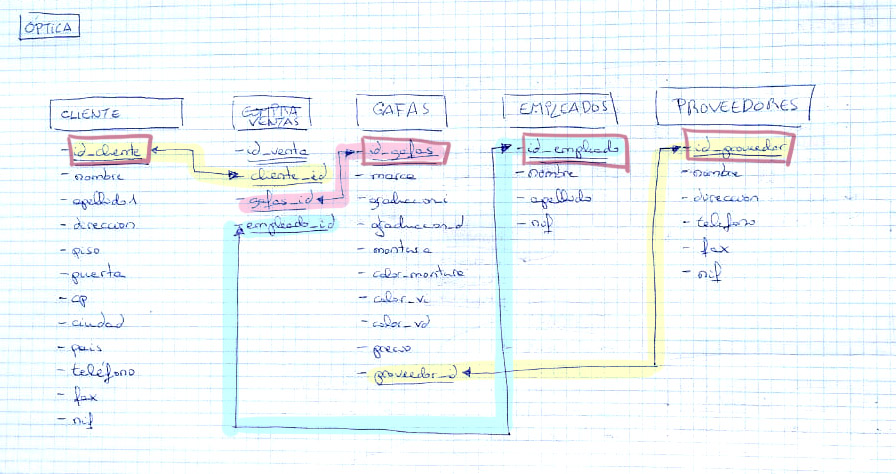 ÓPTICA
CLIENTE
- id_cliente
- nombre
- apellido1
- direccion
- piso
- puerta
- cp
- ciudad
- pais
- teléfono
- fax
- nif
COMPRA
VENTAS
- id_venta
- cliente_id
- gafas_id
- empleado_id
GAFAS
- id_gafas
- marca
- graduacion_i
- graduacion_d
- montura
- color_montura
- color_vi
- color_vd
- precio
- proveedor_id
EMPLEADOS
- id_empleado
- nombre
- apellido
- nif
PROVEEDORES
- id_proveedor
- nombre
- direccion
- telefono
- fax
- nif